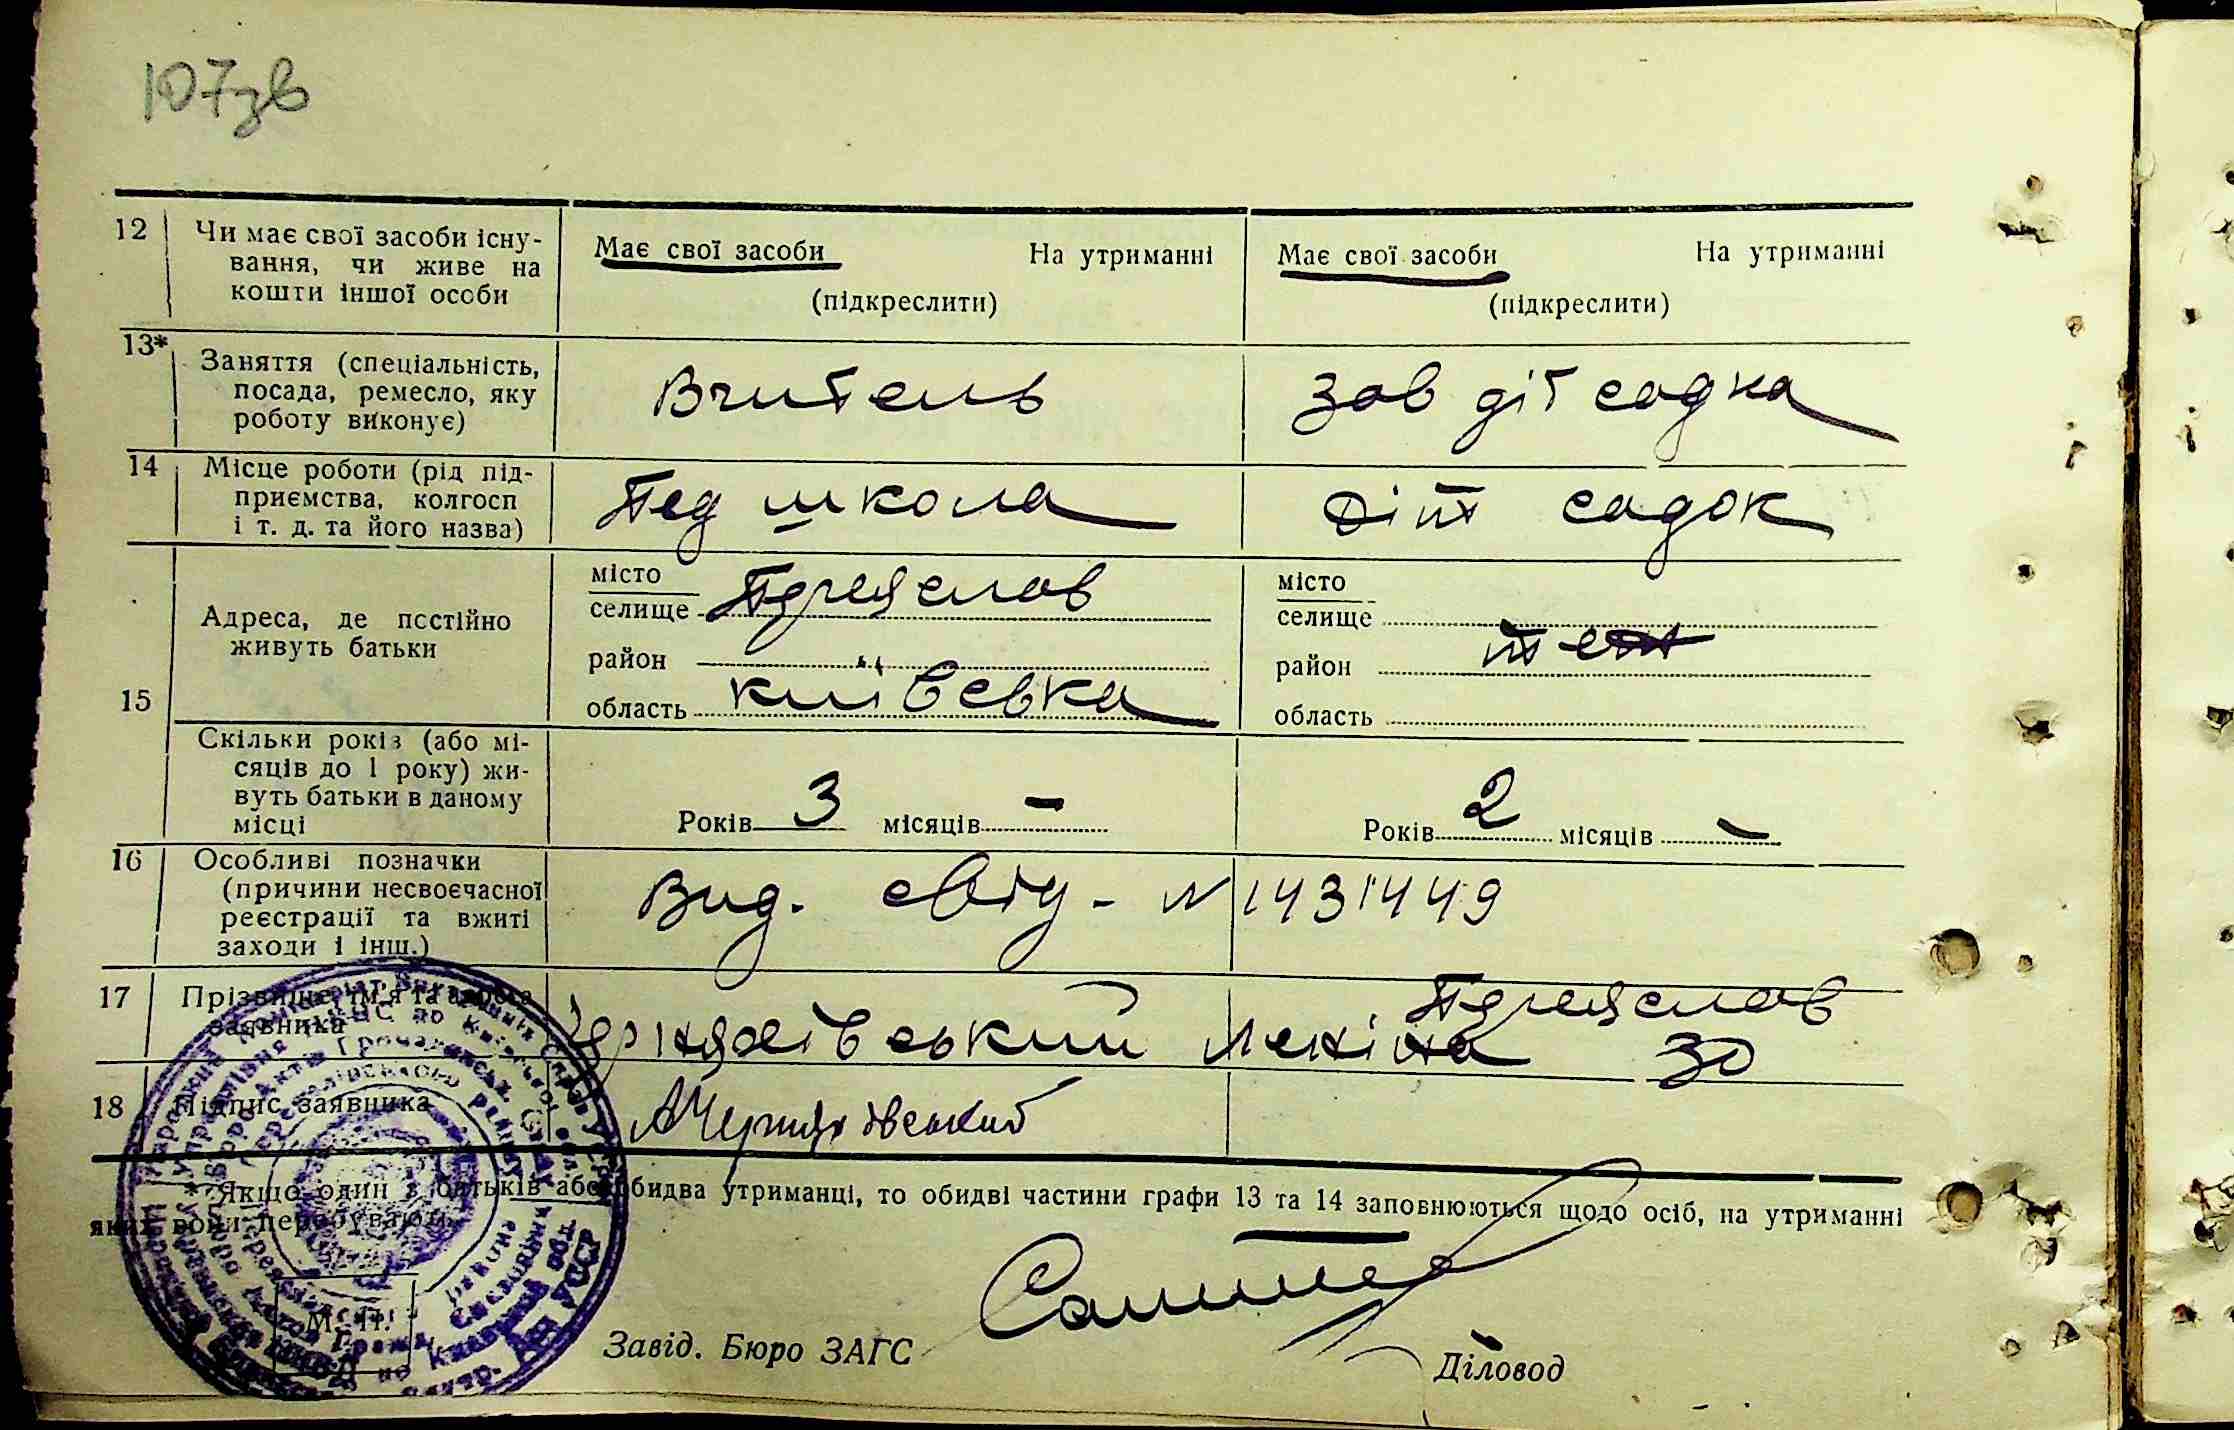 107зв
12 Чи має свої засоби існу-
вання, чи живе на
кошти іншої особи
Має свої засоби На утриманні
(підкреслити)
Має свої засоби На утриманні
(підкреслити)
13* Заняття (спеціальність,
посада, ремесло, яку
роботу виконує)
Вчитель
Зав діт садка
14 Місце роботи (рід під-
приємства, колгосп
і т. д. та його назва)
Пед школа
Діт садок
15 Адреса, де постійно
живуть батьки
місто
селище Переяслав
район "
область Київська
місто
селище
район
область
Скільки років (або мі-
сяців до 1 року) жи-
вуть батьки в даному
місці
Років 3 місяців -
Років 2 місяців -
16 Особливі позначки
(причини несвоєчасної
реєстрації та вжиті
заходи і інш.)
Вид. свід- N 1431449
17 Прізвище, ім'я та адреса
заявника
Переяслав
Черняхівський Леніна 30
18 Підпис заявника
АЧерняхівський
* Якщо один з батьків або обидва утриманці, то обидві частини графи 13 та 14 заповнюються щодо осіб, на утриманні
яких вони перебувають.
М. П.
Завід. Бюро ЗАГС
Діловод